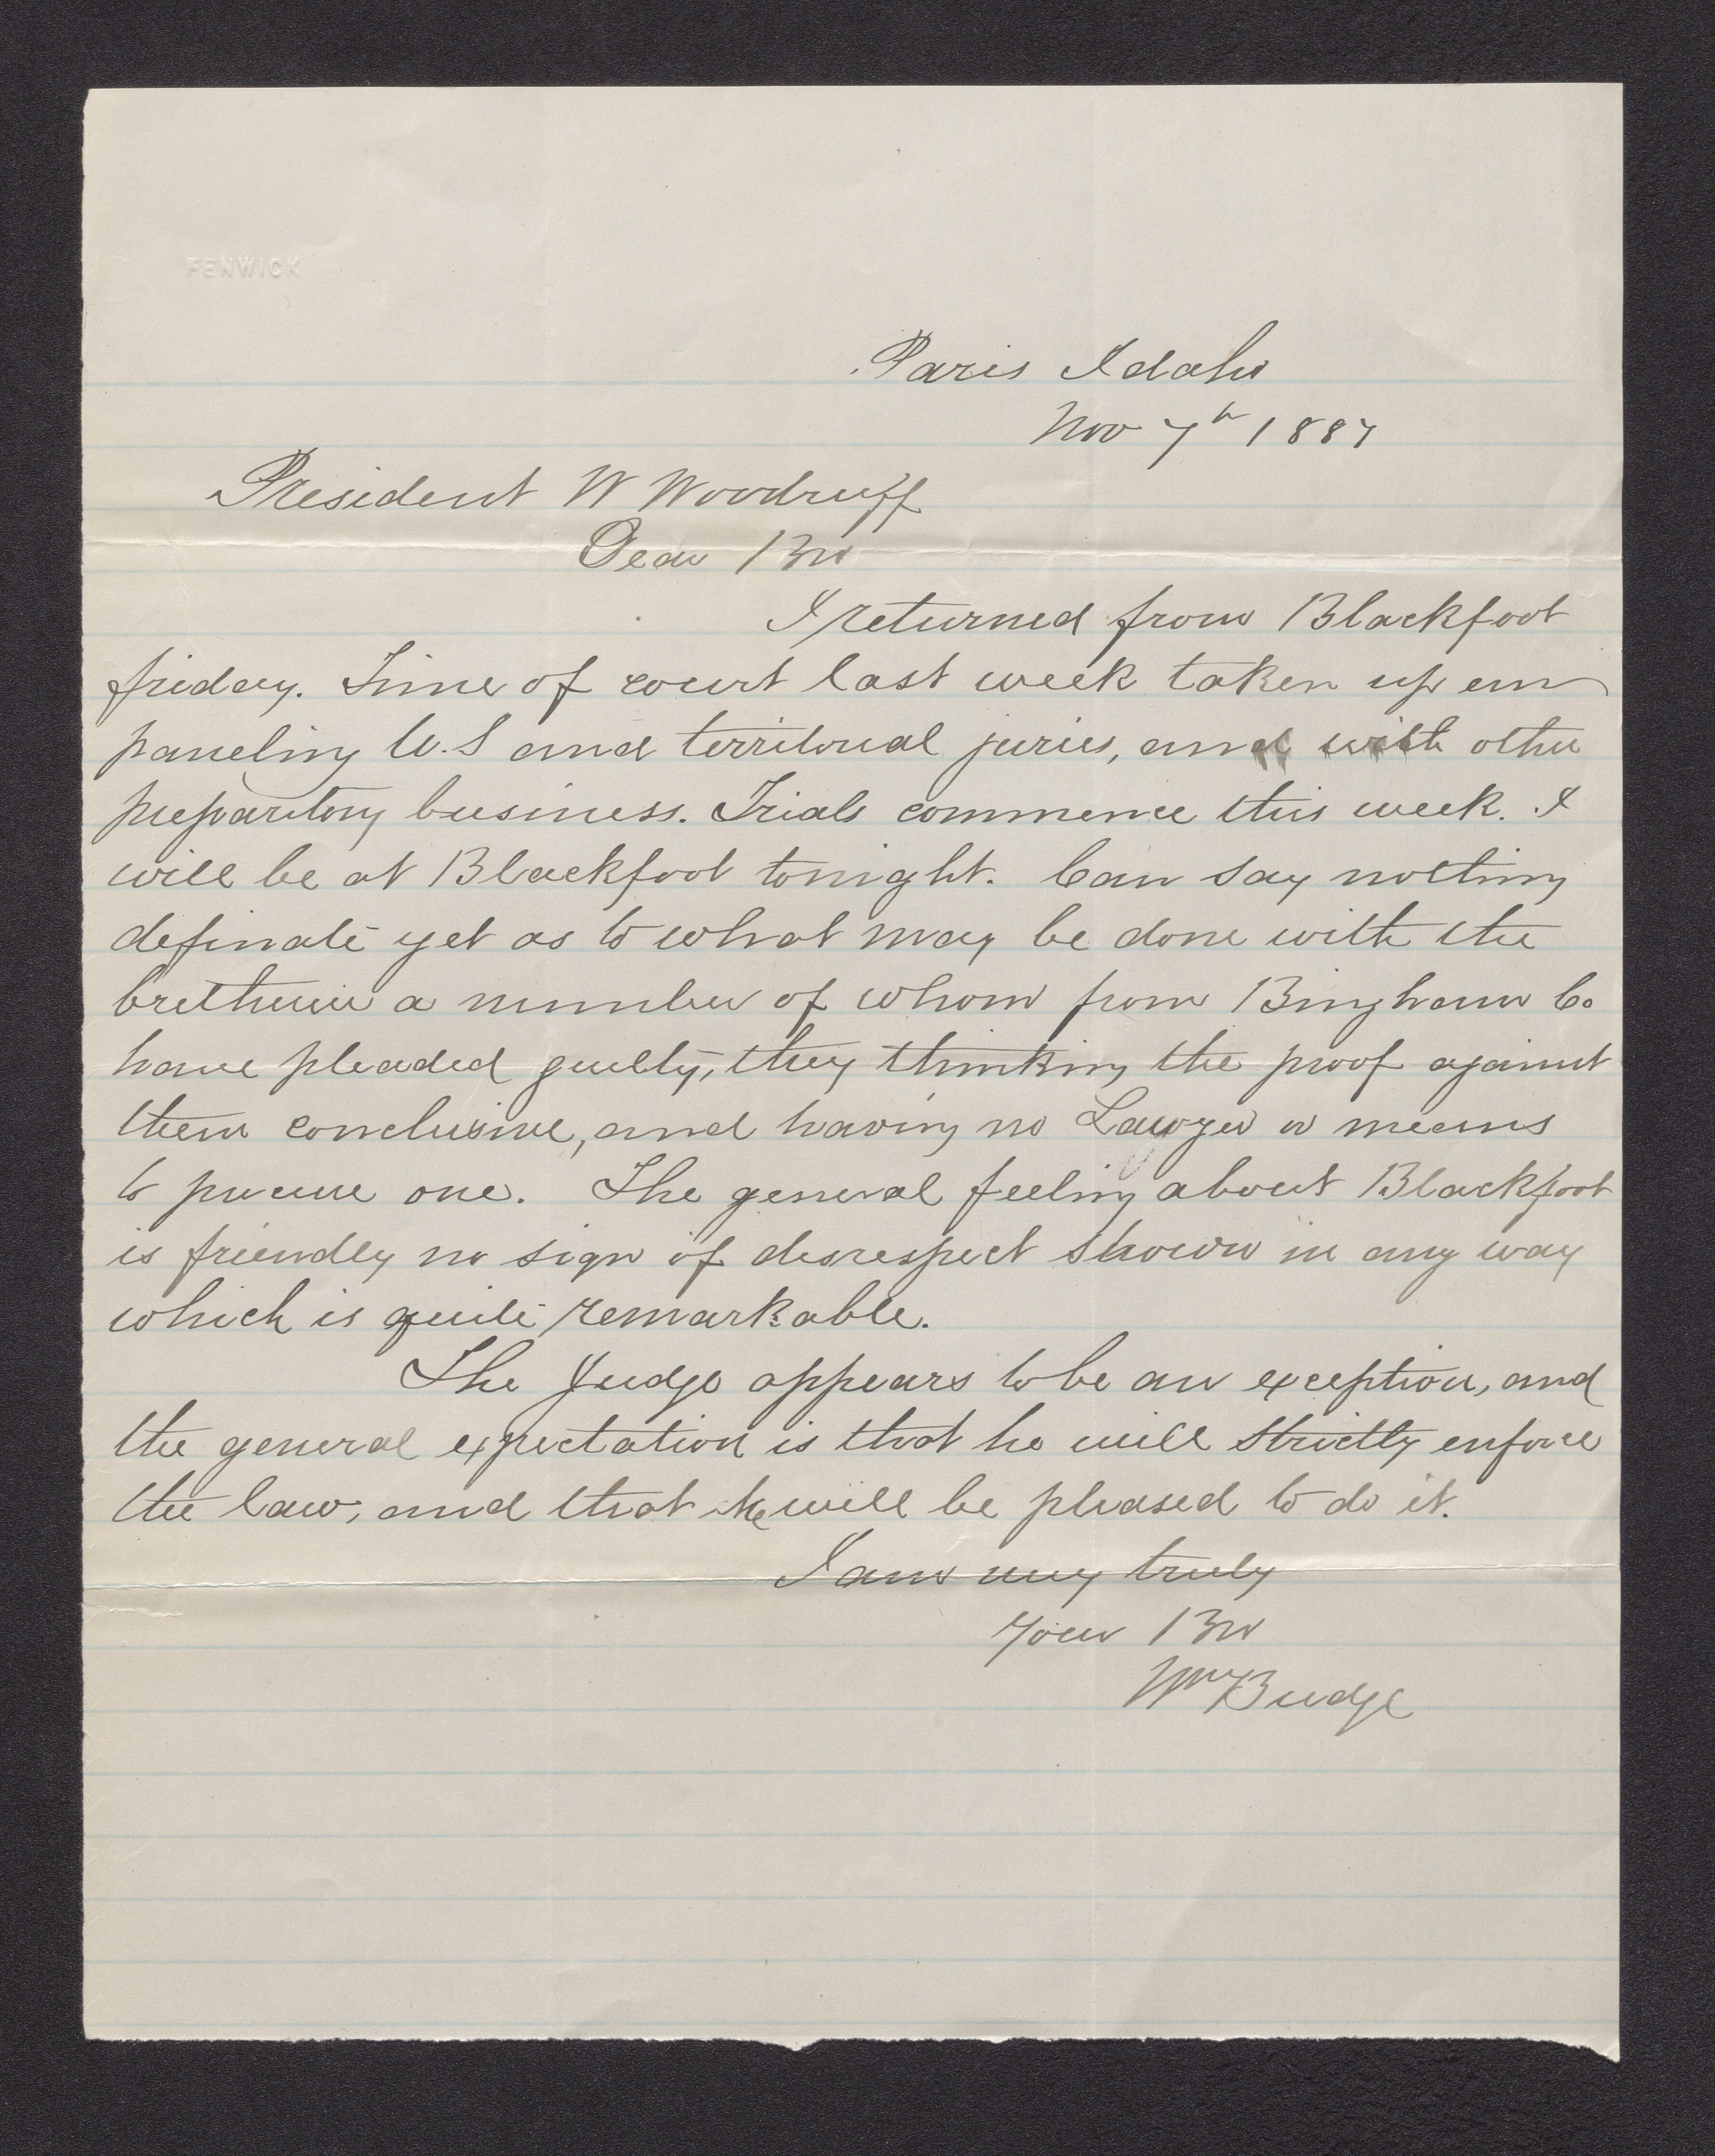 FENWICK
Paris Idaho
Nov 7th 1887
President W Woodruff
Dear Bro
I returned from Blackfoot
friday. Time of court last week taken up em
paneling U.S and territorial juries, and with other
preparitory business. Trials commence this week. I
will be at Blackfoot tonight. Can say nothing
definate yet as to what may be done with the
bretheren a number of whom from Bingham Co
have pleaded guilty, they thinking the proof against
them conclusive, and having no Lawyer or means
to procure one. The general feeling about Blackfoot
is friendly no sign of disrespect shown in any way
which is quite remarkable.
The Judge appears to be an exception, and
the general expectation is that he will strictly enforce
the law, and that he will be pleased to do it.
I am very truly
Your Bro
Wm Budge